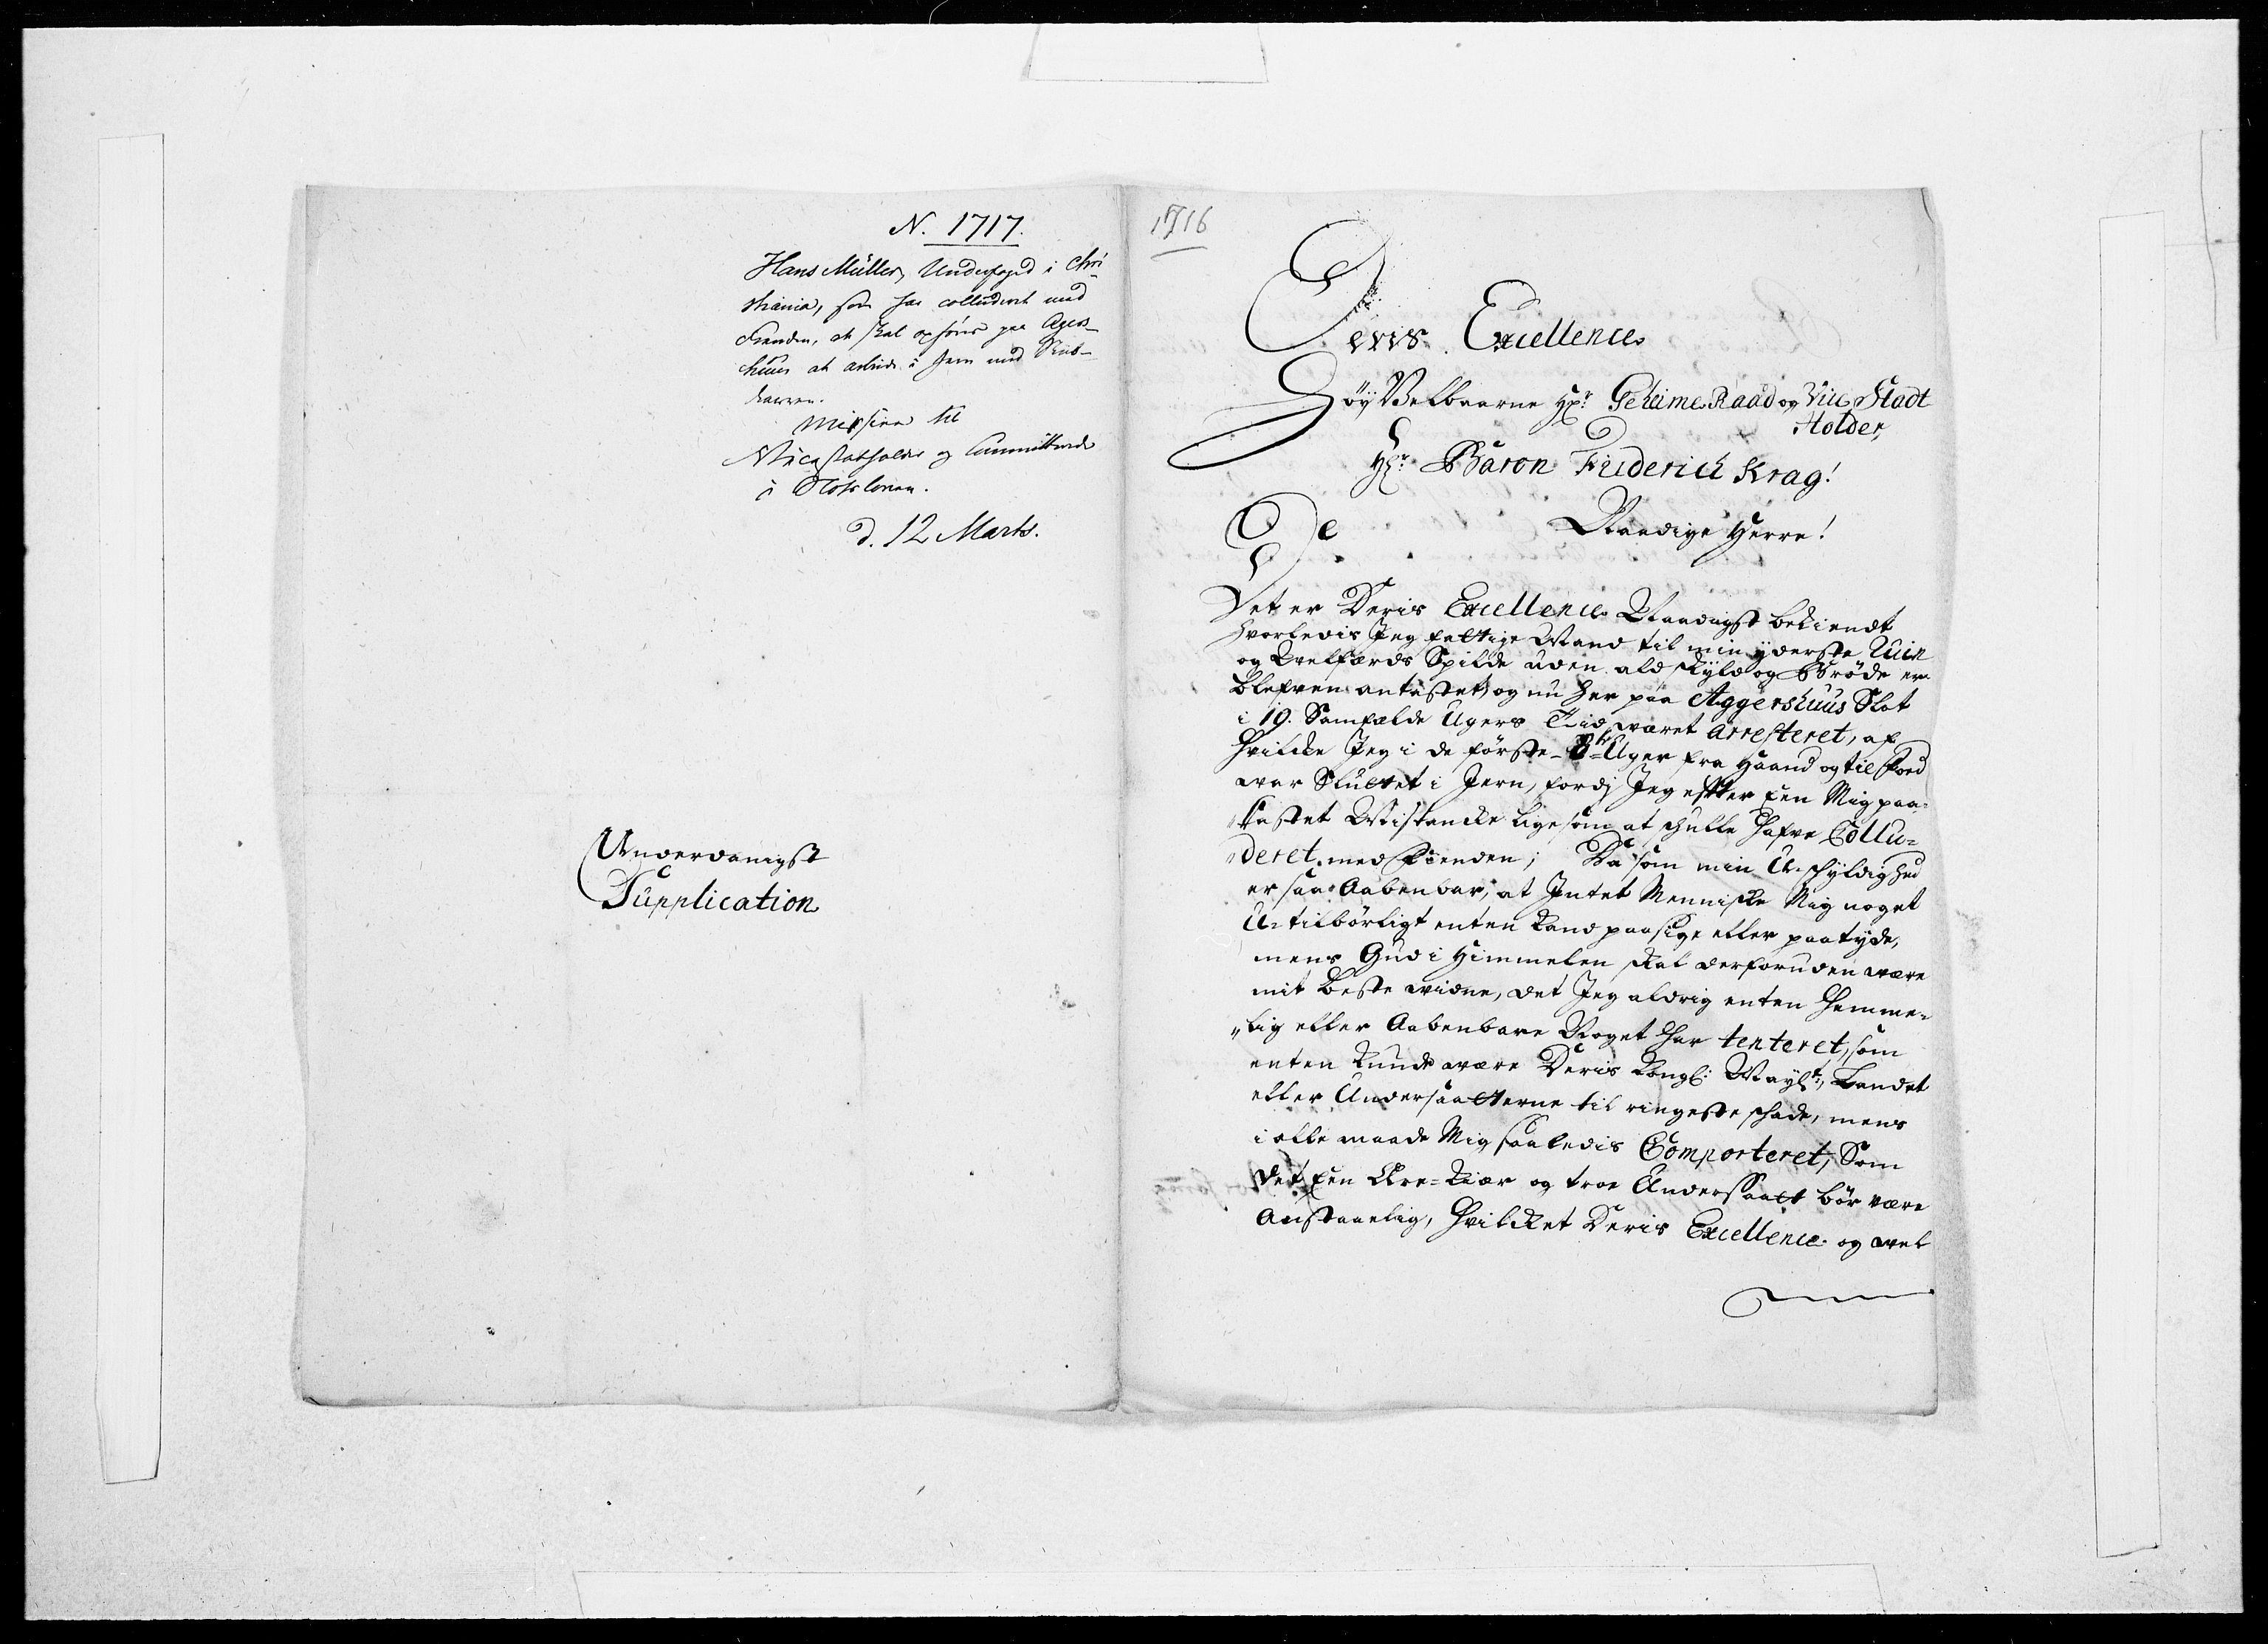 N. 1717.
Hans Müller, Underfoged i Chri
stiania, som har colluderet med
Fienden, at skal opføris paa Agers-
huus at arbeide i Jern med Skub-
karren.
Missive til
Vicestatholder og Committerede
i Slotsloven.
d. 12 Marts.
Underdanigst
Supplication
1716
Deris Excellence
Höy Velbaarne Hr: Geheime Raad og Vice Stadt
Holder,
Hr: Baron Friderich Krag!
Naadige Herre!
Det er Deris Excellence Naadigst bekiendt
hvorledis Jeg fattige Mand til min yderste Ruin
og Welfærds Spilde uden ald skyld og Bröde er
blefven antastet, og nu her paa Aggershuus Slot
i 19. Samfælde Ugers Tid været Arresteret, af
hvilcke Jeg i de förste 8te Uger fra Haand og til Foed
war Sluttet i Jern, fordj Jeg efter een Mig paa-
kastet Mistancke lige som at skulle hafve Collu-
deret med Fienden; Da som min U-skyldighed
er saa Aabenbar, at Intet Menniske Mig noget
U-tilbörligt enten kand paasige eller paatyde,
mens Gud i Himmelen skal desforuden være
mit beste vidne, det Jeg aldrig enten Hemme-
lig eller Aabenbare Noget har tenteret, som
enten kunde være Deris Kongl: Mayts:, Landet
eller Undersaatterne til ringeste skade, mens
i alle maade Mig saaledis Comporteret, Som
det Een Ære-kiær og troe Undersaatt bör være
Anstændig, hvilcket Deris Excellence og vel